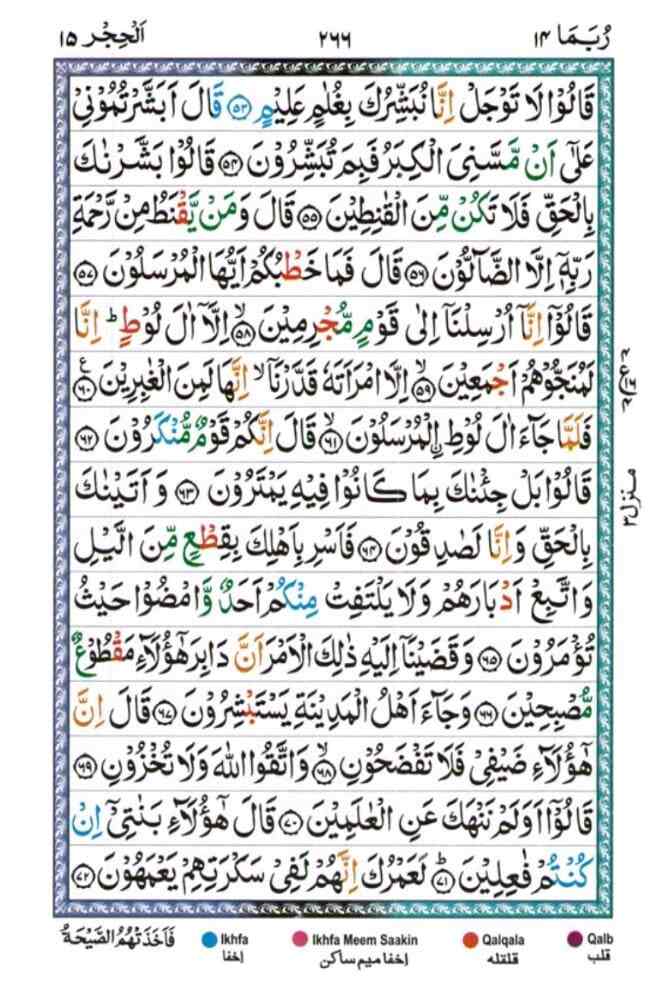 رُبَمَا ١٤ ٢٦٦ اَلْحِجْر ١٥
قَالُوْا لَا تَوْجَلْ اِنَّا نُبَشِّرُكَ بِغُلٰمٍ عَلِيْمٍ ۝٥٣ قَالَ اَبَشَّرْتُمُوْنِيْ
عَلٰٓى اَنْ مَّسَّنِيَ الْكِبَرُ فَبِمَ تُبَشِّرُوْنَ ۝٥٤ قَالُوْا بَشَّرْنٰكَ
بِالْحَقِّ فَلَا تَكُنْ مِّنَ الْقٰنِطِيْنَ ۝٥٥ قَالَ وَمَنْ يَّقْنَطُ مِنْ رَّحْمَةِ
رَبِّهٖٓ اِلَّا الضَّآلُّوْنَ ۝٥٦ قَالَ فَمَا خَطْبُكُمْ اَيُّهَا الْمُرْسَلُوْنَ ۝٥٧
قَالُوْٓا اِنَّآ اُرْسِلْنَآ اِلٰى قَوْمٍ مُّجْرِمِيْنَ ۝٥٨ۙ اِلَّآ اٰلَ لُوْطٍ ؕ اِنَّا
لَمُنَجُّوْهُمْ اَجْمَعِيْنَ ۝٥٩ۙ اِلَّا امْرَاَتَهٗ قَدَّرْنَآ ۙ اِنَّهَا لَمِنَ الْغٰبِرِيْنَ ۝٦٠ۧ
فَلَمَّا جَآءَ اٰلَ لُوْطِ ِۨالْمُرْسَلُوْنَ ۝٦١ۙ قَالَ اِنَّكُمْ قَوْمٌ مُّنْكَرُوْنَ ۝٦٢
قَالُوْا بَلْ جِئْنٰكَ بِمَا كَانُوْا فِيْهِ يَمْتَرُوْنَ ۝٦٣ وَاَتَيْنٰكَ
بِالْحَقِّ وَاِنَّا لَصٰدِقُوْنَ ۝٦٤ فَاَسْرِ بِاَهْلِكَ بِقِطْعٍ مِّنَ الَّيْلِ
وَاتَّبِعْ اَدْبَارَهُمْ وَلَا يَلْتَفِتْ مِنْكُمْ اَحَدٌ وَّامْضُوْا حَيْثُ
تُؤْمَرُوْنَ ۝٦٥ وَقَضَيْنَآ اِلَيْهِ ذٰلِكَ الْاَمْرَ اَنَّ دَابِرَ هٰٓؤُلَآءِ مَقْطُوْعٌ
مُّصْبِحِيْنَ ۝٦٦ وَجَآءَ اَهْلُ الْمَدِيْنَةِ يَسْتَبْشِرُوْنَ ۝٦٧ قَالَ اِنَّ
هٰٓؤُلَآءِ ضَيْفِيْ فَلَا تَفْضَحُوْنِ ۝٦٨ۙ وَاتَّقُوا اللّٰهَ وَلَا تُخْزُوْنِ ۝٦٩
قَالُوْٓا اَوَلَمْ نَنْهَكَ عَنِ الْعٰلَمِيْنَ ۝٧٠ قَالَ هٰٓؤُلَآءِ بَنٰتِيْٓ اِنْ
كُنْتُمْ فٰعِلِيْنَ ۝٧١ؕ لَعَمْرُكَ اِنَّهُمْ لَفِيْ سَكْرَتِهِمْ يَعْمَهُوْنَ ۝٧٢
ع ١٦ ٤
منزل ٣
فَاَخَذَتْهُمُ الصَّيْحَةُ
Ikhfa اخفا
Ikhfa Meem Saakin اخفا میم ساکن
Qalqala قلقله
Qalb قلب